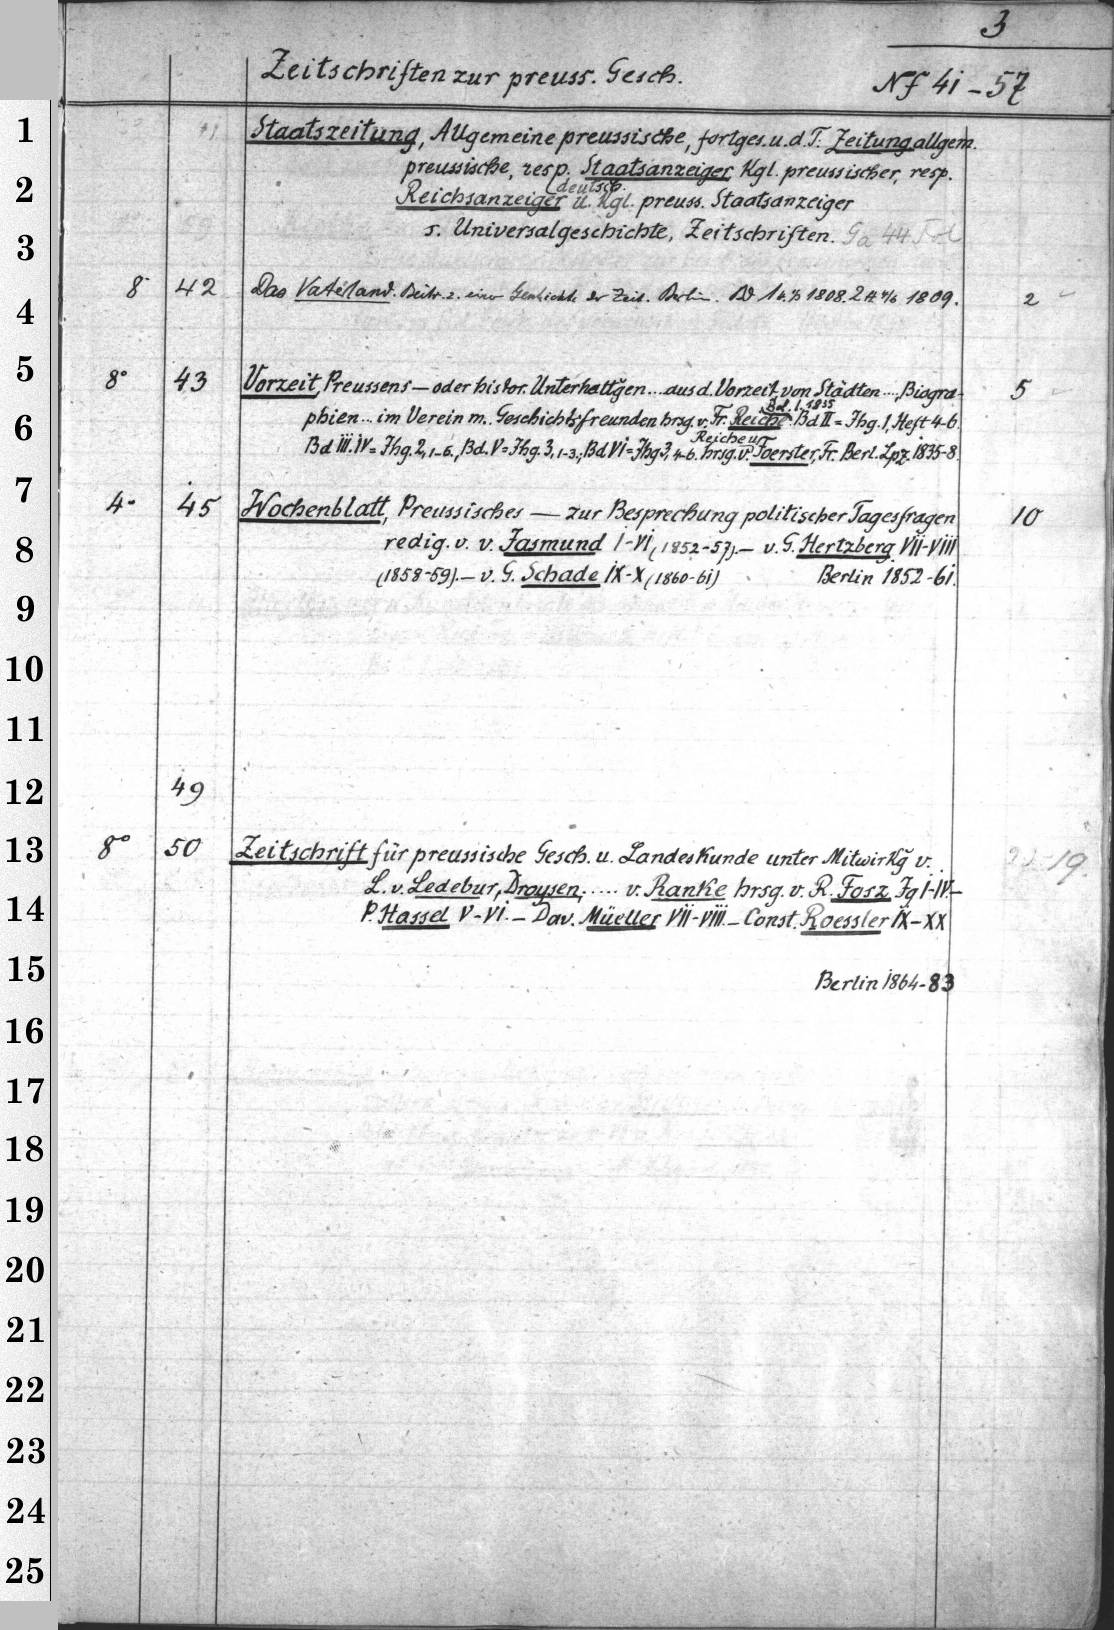 3
Zeitschriften zur preuss. Gesch. Nf 41-57
1 41 Staatszeitung, Allgemeine preussische, fortges. u. d. T. Zeitung allgem.
preussische, resp. Staatsanzeiger, Kgl. preussischer, resp.
2 deutsch.
Reichsanzeiger u. Kgl. preuss. Staatsanzeiger
3 s. Universalgeschichte, Zeitschriften. Ga 44 Fol
4 8 42 Das Vaterland. Beitr. z. einer Geschichte der Zeit. Berlin. Bd 1 1808. 2 1809. 2
5 8° 43 Vorzeit, Preussens — oder histor. Unterhaltg̃en ... aus d. Vorzeit, von Städten ..., Biogra- 5
Bd. I. 1835
6 phien ... im Verein m. Geschichtsfreunden hrsg. v. Fr. Reiche Bd II = Jhg. 1, Heft 4-6.
Reiche u.
Bd III. IV = Jhg. 2, 1-6., Bd. V = Jhg. 3, 1-3., Bd VI = Jhg 3, 4-6. hrsg. v. Foerster, Fr. Berl. Lpz. 1835-8.
7 4° 45 Wochenblatt, Preussisches — zur Besprechung politischer Tagesfragen 10
8 redig. v. v. Jasmund I-VI (1852-57). — v. G. Hertzberg VII-VIII
(1858-59). — v. G. Schade IX-X (1860-61) Berlin 1852-61.
9
10
11
12 49
13 8° 50 Zeitschrift für preussische Gesch. u. Landeskunde unter Mitwirkg̃ v. 19.
L. v. Ledebur, Droysen, ..... v. Ranke hrsg. v. R. Fosz Jg I-IV. —
14 P. Hassel V-VI. — Dav. Müeller VII-VIII. — Const. Roessler IX-XX
15 Berlin 1864-83
16
17
18
19
20
21
22
23
24
25